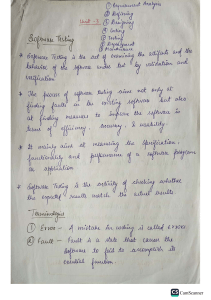 ① Requirement Analysis
② Defining
Unit - 3 ③ Designing
④ Coding
⑤ Testing
⑥ Deployment
⑦ Maintenance
Software Testing
* Software Testing is the act of examining the artifacts and the
behavior of the software under test by validation and
verification
* The process of software testing aims not only at
finding faults in the existing software but also
at finding measures to improve the software in
terms of efficiency, accuracy & usability
* It mainly aims at measuring the specification,
functionality and performance of a software program
or application
* Software Testing is the activity of checking whether
the expected results match the actual results
Terminologies
① Error - A mistake in coding is called Error
② Fault - Fault is a state that causes the
software to fail to accomplish its
essential function.
CS CamScanner